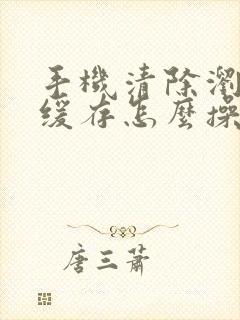 手機清除瀏
緩存怎麼操
唐三蕭